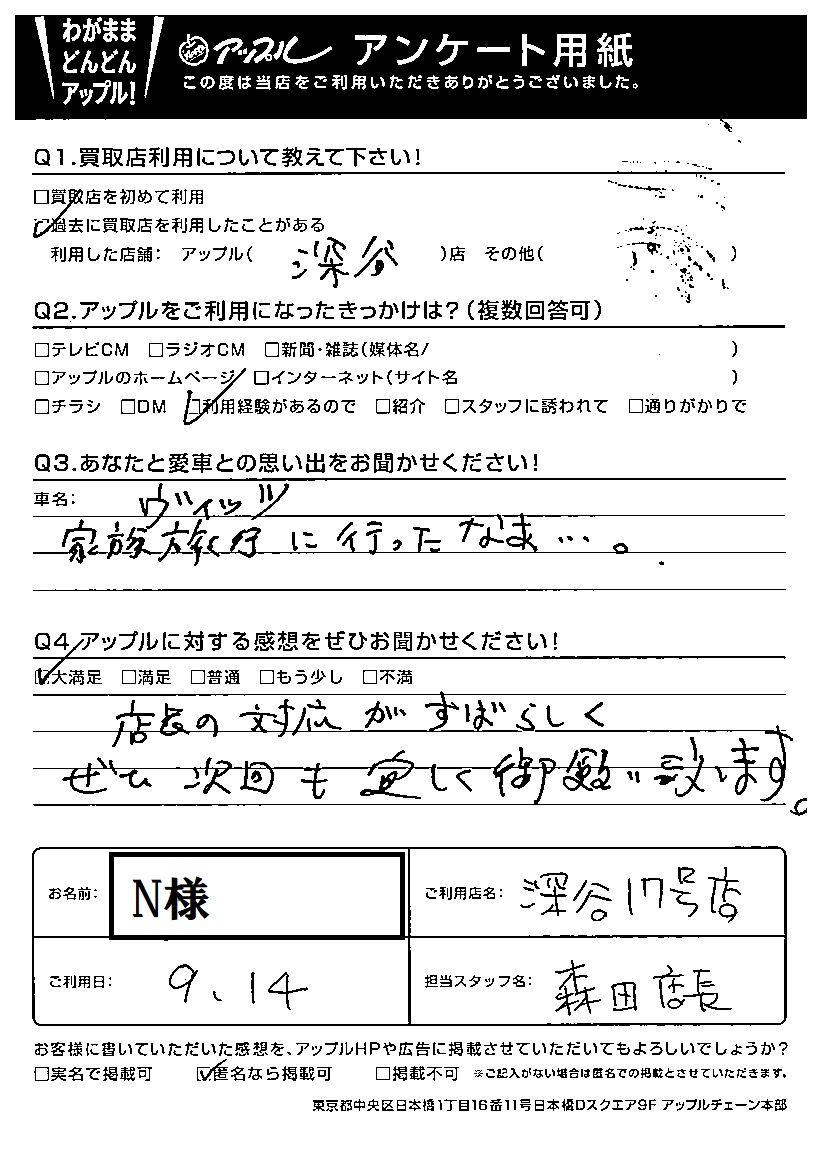 わがまま
どんどん
アップル!
アップル アンケート用紙
この度は当店をご利用いただきありがとうございました。
Q1.買取店利用について教えて下さい!
□買取店を初めて利用
☑過去に買取店を利用したことがある
利用した店舗: アップル( 深谷 )店 その他( )
Q2.アップルをご利用になったきっかけは?(複数回答可)
□テレビCM □ラジオCM □新聞・雑誌(媒体名/ )
□アップルのホームページ □インターネット(サイト名 )
□チラシ □DM ☑利用経験があるので □紹介 □スタッフに誘われて □通りがかりで
Q3.あなたと愛車との思い出をお聞かせください!
車名: ヴィッツ
家族旅行に行ったなぁ…。
Q4.アップルに対する感想をぜひお聞かせください!
☑大満足 □満足 □普通 □もう少し □不満
店長の対応がすばらしく
ぜひ次回も宜しく御願い致します。
お名前: N様
ご利用店名: 深谷17号店
ご利用日: 9、14
担当スタッフ名: 森田店長
お客様に書いていただいた感想を、アップルHPや広告に掲載させていただいてもよろしいでしょうか?
□実名で掲載可 ☑匿名なら掲載可 □掲載不可 ※ご記入がない場合は匿名での掲載とさせていただきます。
東京都中央区日本橋1丁目16番11号日本橋Dスクエア9F アップルチェーン本部